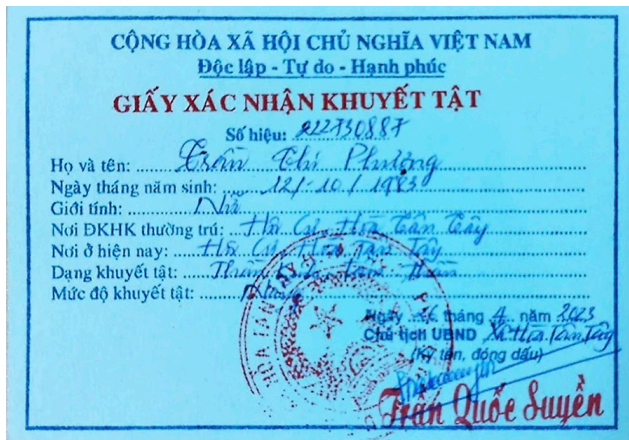 CỘNG HÒA XÃ HỘI CHỦ NGHĨA VIỆT NAM
Độc lập - Tự do - Hạnh phúc
GIẤY XÁC NHẬN KHUYẾT TẬT
Số hiệu: 212730887
Họ và tên: Trần Thị Phượng
Ngày tháng năm sinh: 12/10/1983
Giới tính: Nữ
Nơi ĐKHK thường trú: Hòa Tân Tây
Nơi ở hiện nay: Hòa Tân Tây
Dạng khuyết tật: Thần kinh, tâm thần
Mức độ khuyết tật:
Ngày tháng 4 năm 2023
Chủ tịch UBND Xã Hòa Tân Tây
(Ký tên, đóng dấu)
Trần Quốc Suyền